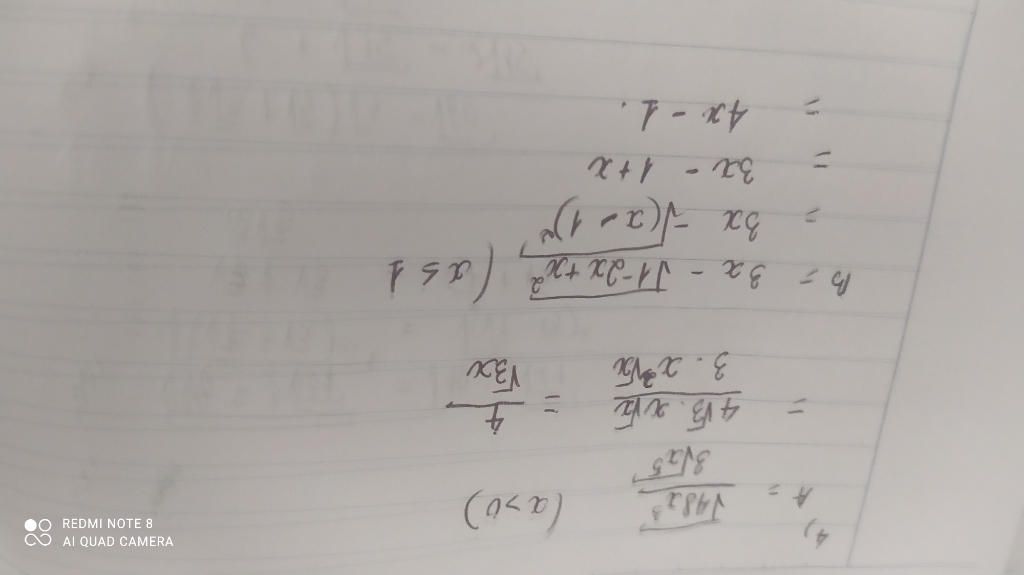 4)
A = √48x³ / 3√x⁵ (x>0)
= 4√3 . x√x / 3 . x²√x = 4 / √3x
B = 3x - √1-2x+x² (x ≤ 1
= 3x - √(x - 1)²
= 3x - 1+x
= 4x - 1.
REDMI NOTE 8
AI QUAD CAMERA